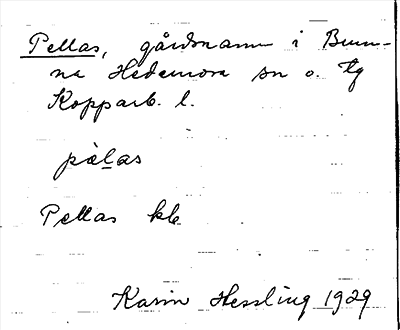 Pellas, gårdsnamn i Brun-
na Hedemora sn o. tg
Kopparb. l.
pælas
Pellas kb
Karin Hessling 1929